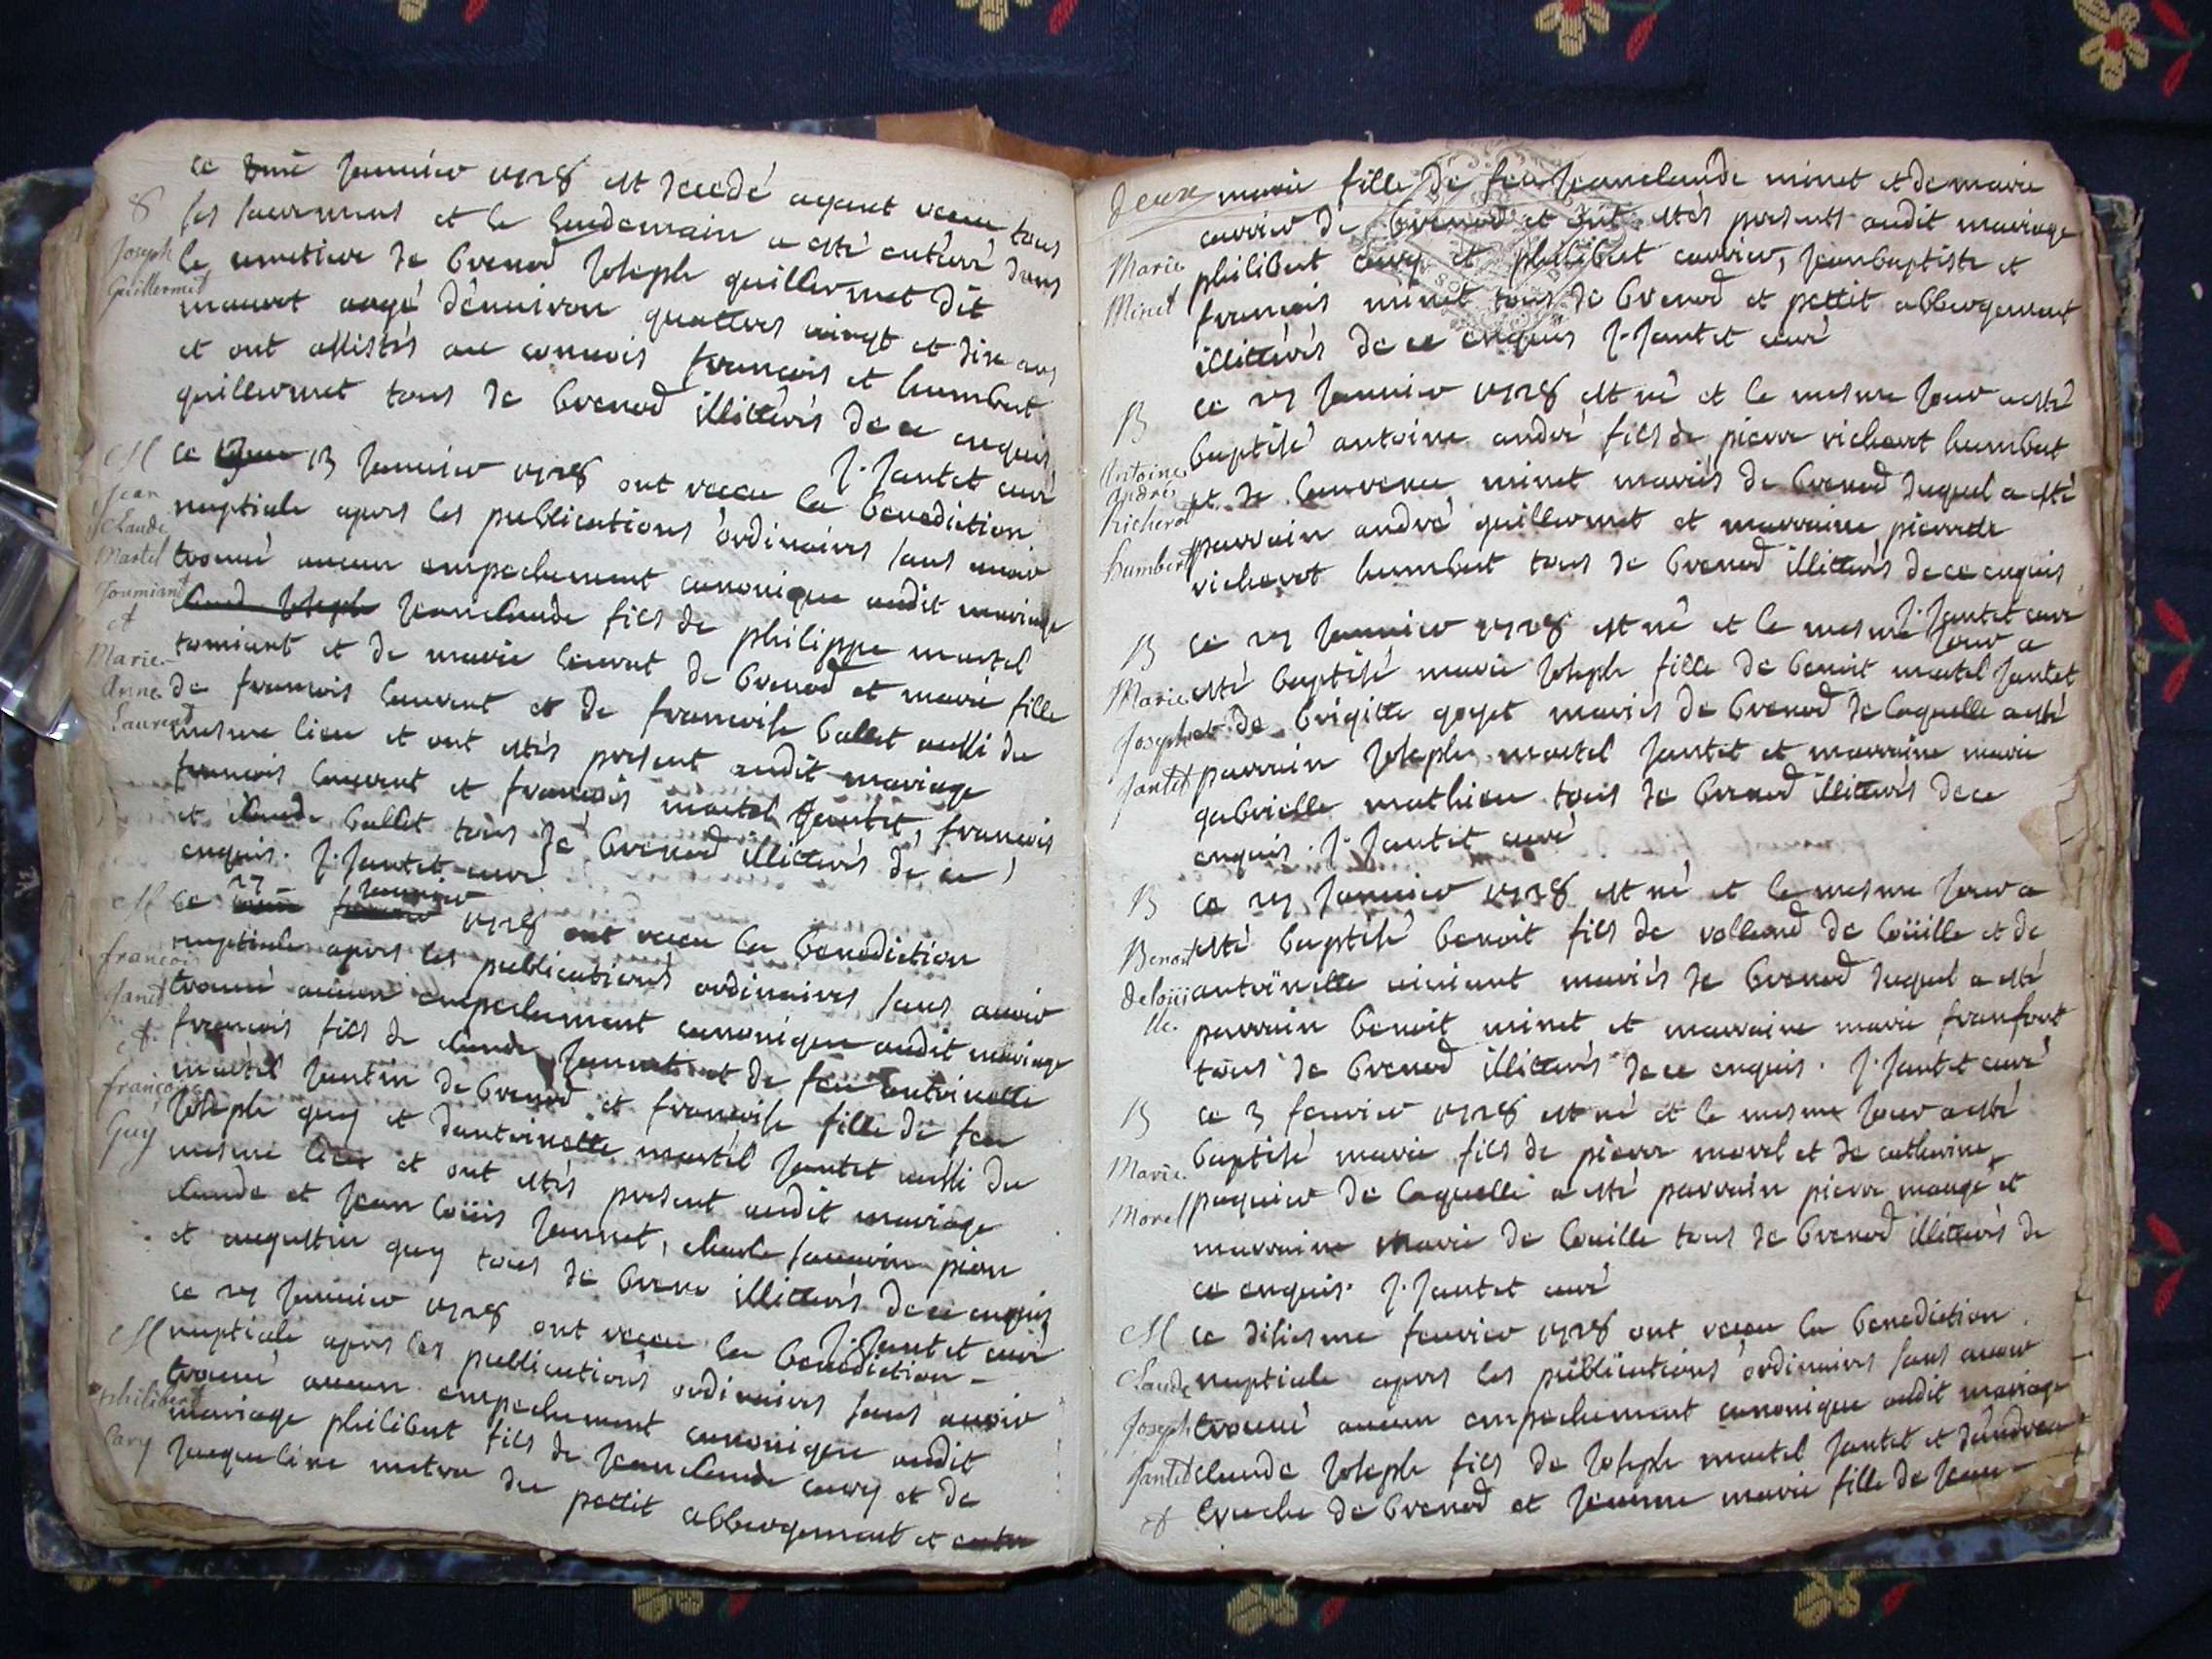 ce 8me Janvier 1728 est decedé ayant receu tous
8 ses sacremens et le lendemain a esté enterré dans
Joseph Guillermet
le cimetiere de brenod Joseph guillermet dit
mauret aagé d'environ quattres vingt et dix ans
et ont assistés au convois francois et humbert
guillermet tous de brenod illitterés de ce enquis
J. Jantet curé
M ce 13 Janvier 1728 ont receu la benediction
Jean Claude Martel Tomiant et Marie Anne Laurend
nuptiale apres les publications ordinaires sans avoir
trouvé aucun empechement canonique audit mariage
Jeanclaude fils de philippe martel
tomiant et de marie laurent de brenod et marie fille
de francois laurent et de francoise ballet aussi du
mesme lieu et ont estés present audit mariage
francois laurent et francois martel Jantet, francois
et claude ballet tous de brenod illitterés de ce
enquis. J. Jantet curé
M ce 27 Janvier 1728 ont receu la benediction
francois Janet et francoise Guy
nuptiale apres les publications ordinaires sans avoir
trouvé aucun empechement canonique audit mariage
francois fils de claude Jannet et de feu antoinette
martel Jantin de brenod et francoise fille de feu
Joseph guy et d'antoinette martel Jantet aussi du
mesme lieu et ont estés present audit mariage
claude et Jean loüis Jannet, claude savarin pion
et augustin guy tous de breno illitterés de ce enquis
J. Jantet curé
ce 27 Janvier 1728 ont receu la benediction
M nuptiale apres les publications ordinaires sans avoir
philibert Cary
trouvé aucun empechement canonique audit
mariage philibert fils de Jeanclaude cury et de
Jacqueline metra du pettit abbergement et
deux
marie fille de feu Jeanclaude minet et de marie
Marie Minet
carrier de brenod et ont estés presents audit mariage
philibert cury et philibert carrier, Jeanbaptiste et
francois minet tous de brenod et pettit abbergement
illitterés de ce enquis J. Jantet curé
B ce 27 Janvier 1728 est né et le mesme Jour a esté
Antoine André Richerot humbert
baptisé antoine andré fils de pierre richerot humbert
et de laurence minet mariés de brenod duquel a esté
parrain andré guillermet et marraine pierrette
richerot humbert tous de brenod illitterés de ce enquis
J. Jantet curé
B ce 27 Janvier 1728 est né et le mesme Jour a
Marie Joseph Jantet
esté baptisé marie Joseph fille de benoit martel Jantet
et de brigitte goyet mariés de brenod de laquelle a esté
parrain Joseph martel Jantet et marraine marie
gabrielle mathieu tous de brenod illitterés de ce
enquis. J. Jantet curé
B ce 27 Janvier 1728 est né et le mesme Jour a
Benoit deloüille.
esté baptisé benoit fils de rolland de loüille et de
antoinette miniant mariés de brenod duquel a esté
parrain benoit minet et marraine marie
tous de brenod illitterés de ce enquis. J. Jantet curé
B ce 3 fevrier 1728 est né et le mesme Jour a esté
Marie Morel
baptisé marie fils de pierre morel et de catherine
paquier de laquelle a esté parrain pierre mangé et
marraine marie de louille tous de brenod illitterés de
ce enquis. J. Jantet curé
M ce disiesme fevrier 1728 ont receu la benediction
Claude Joseph Jantet et
nuptiale apres les publications ordinaires sans avoir
trouvé aucun empechement canonique audit mariage
claude Joseph fils de Joseph martel Jantet et d'andrea
cruche de brenod et Jeanne marie fille de Jean-